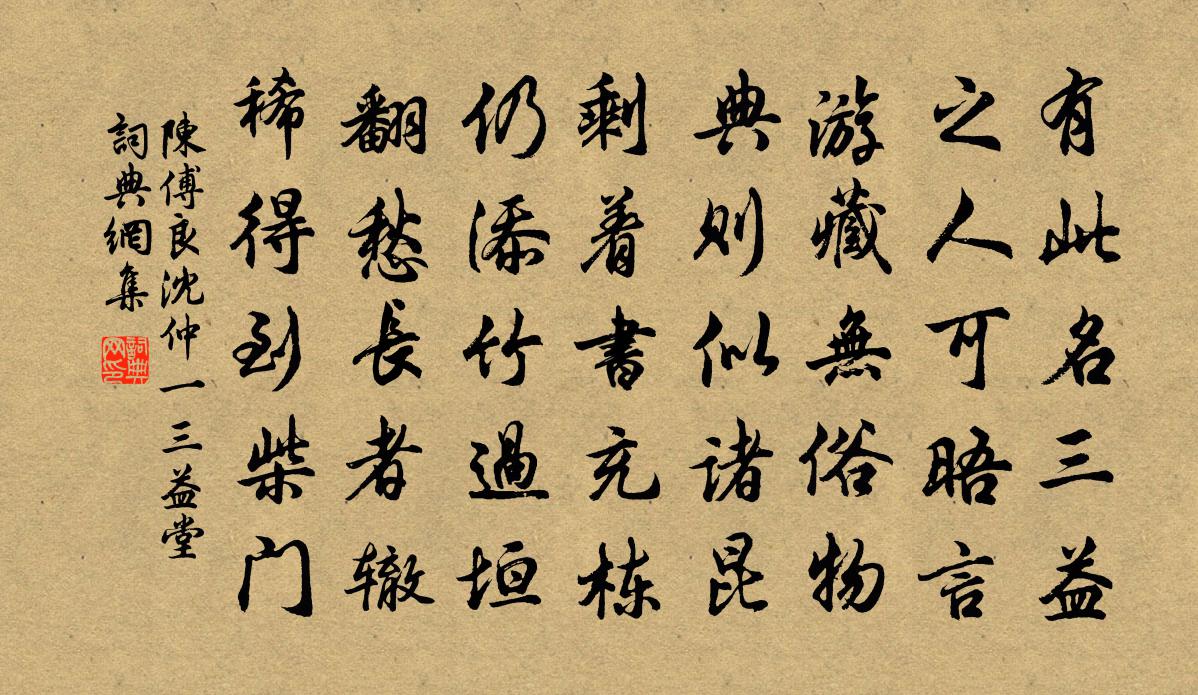 有此名三益
之人可晤言
游藏無俗物
典则似诸昆
剩着書充栋
仍添竹過垣
翻愁長者辙
稀得到柴门
陳傅良沈仲一三益堂
詞典網集
詞典网印